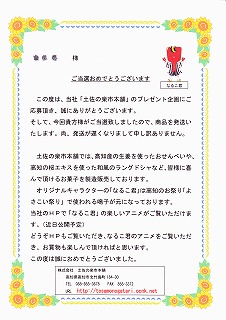 様
ご当選おめでとうございます
なるこ君
この度は、当社「土佐の栗市本舗」のプレゼント企画にご
応募頂き、誠にありがとうございます。
そして、今回貴方様がご当選致しましたので、商品を発送い
たします。尚、発送が遅くなりまして申し訳ありません。
土佐の栗市本舗では、高知産の生姜を使ったおせんべいや、
高知の桜エキスを使った和風のラングドシャなど、皆様に喜
んで頂けるお菓子を製造販売しております。
オリジナルキャラクターの「なるこ君」は高知のお祭り「よ
さこい祭り」で使われる鳴子が元になっております。
当社のＨＰで「なるこ君」の楽しいアニメがご覧いただけま
す。（近日公開予定）
どうぞＨＰもご覧いただき、なるこ君のアニメをご覧いただ
き、お買物も楽しんで頂ければと思います。
この度は誠におめでとうございました。
株式会社　土佐の栗市本舗